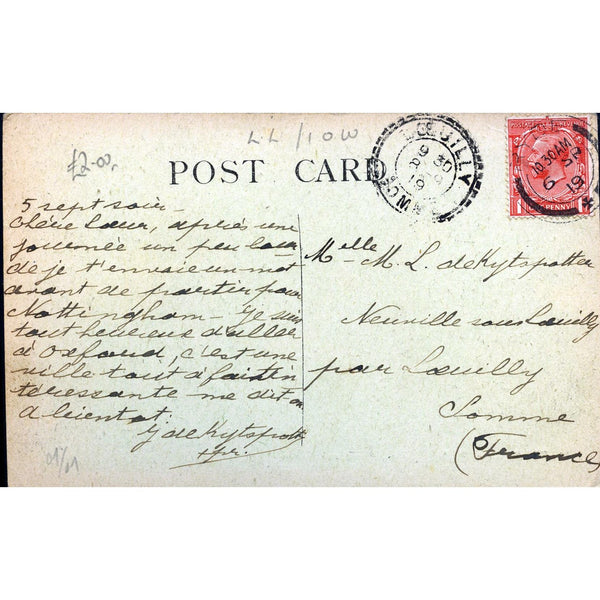 £2-00.
LL/IOW
POST CARD
LŒUILLY
9 30
19
10.30 AM
6
19
5 sept soir -
Chère Sœur, après une
journée un peu lour
de je t'envoie un mot
avant de partir pour
Nottingham - Je suis
tout heureux d'aller
à Oxford, c'est une
ville tout à fait in
téressante me dit on
A bientôt.
G de Kytspotter
Melle M. L. de Kytspotter
Neuville sous Lœuilly
par Lœuilly
Somme
(France)